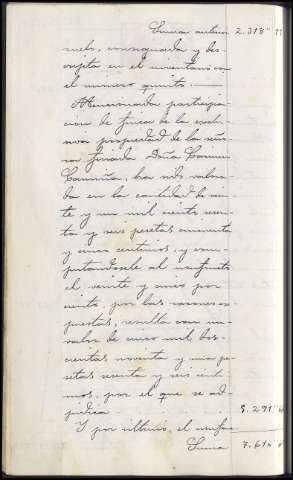 Suma anterior 2.318"77
suelo, consignada y des-
crita en el inventario con
el número quinto.
Mencionada participa-
ción de finca de la exclu-
siva propiedad de la seño-
ra finada Doña Carmen
ha sido valora-
da en la cantidad de vein-
te y un mil ciento sesen-
ta y seis pesetas cincuenta
y cinco centimos, y com-
putandosele al usufructo
el veinte y cinco por
ciento, por las razones ex-
puestas, resulta con un
valor de cinco mil dos-
cientas noventa y una pe-
setas sesenta y seis centi-
mos, por el que se ad-
judica 5.291"
Y por ultimo, el usufruc-
Suma